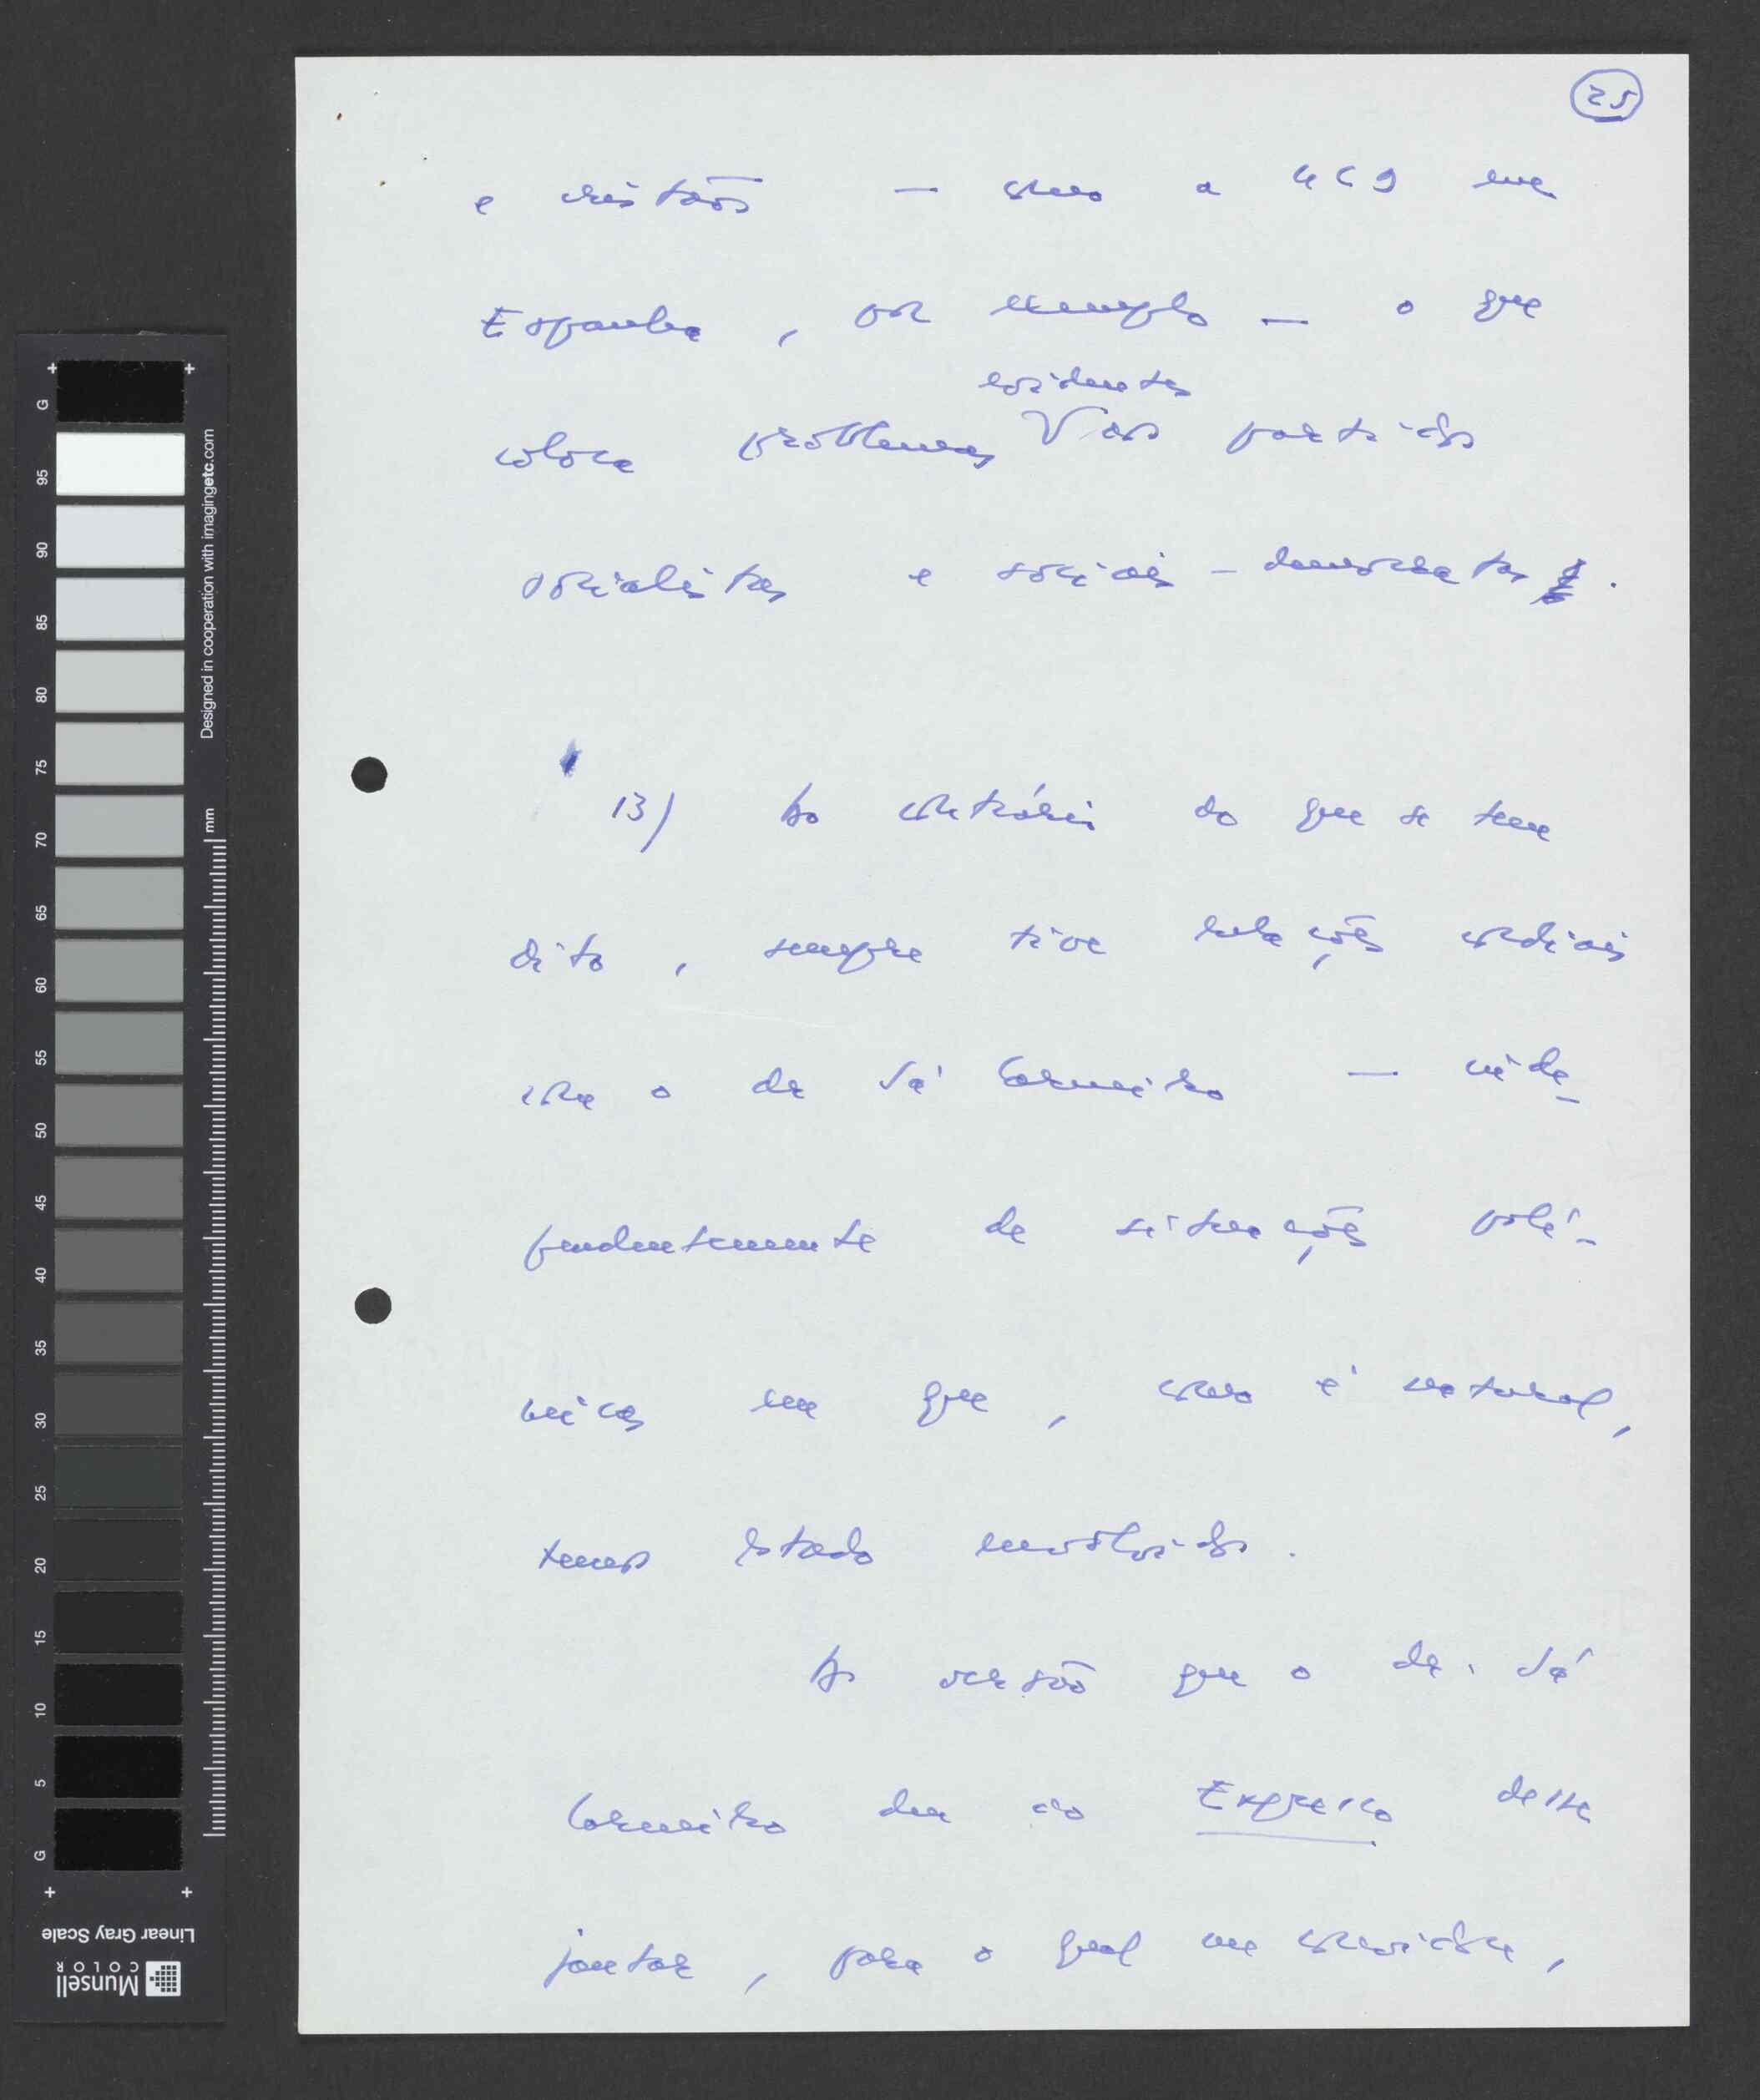 25
e cristãos — como a UCD em
Espanha, por exemplo — o que
evidentes
coloca problemas V aos partidos
socialistas e sociais-democratas.
13) Ao contrário do que se tem
dito, sempre tive relações cordiais
com o dr Sá Carneiro — inde-
pendentemente de situações polé-
micas em que, como é natural,
temos estado envolvidos.
A versão que o dr. Sá
Carneiro deu ao Expresso desse
jantar, para o qual me convidou,
G
95
90
85
80
75
70
65
60
55
50
45
40
35
30
25
20
15
10
5
G
Designed in cooperation with imagingetc.com
mm
Linear Gray Scale
Munsell
COLOR